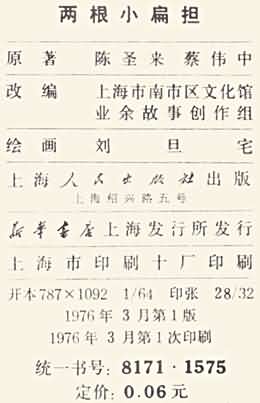 两根小扁担
原著 陈圣来 蔡伟中
改编 上海市南市区文化馆
业余故事创作组
绘画 刘旦宅
上海人民出版社出版
上海绍兴路五号
新华书店上海发行所发行
上海市印刷十厂印刷
开本787×1092 1/64 印张 28/32
1976年 3月第1版
1976年 3月第1次印刷
统一书号：8171·1575
定价：0.06元